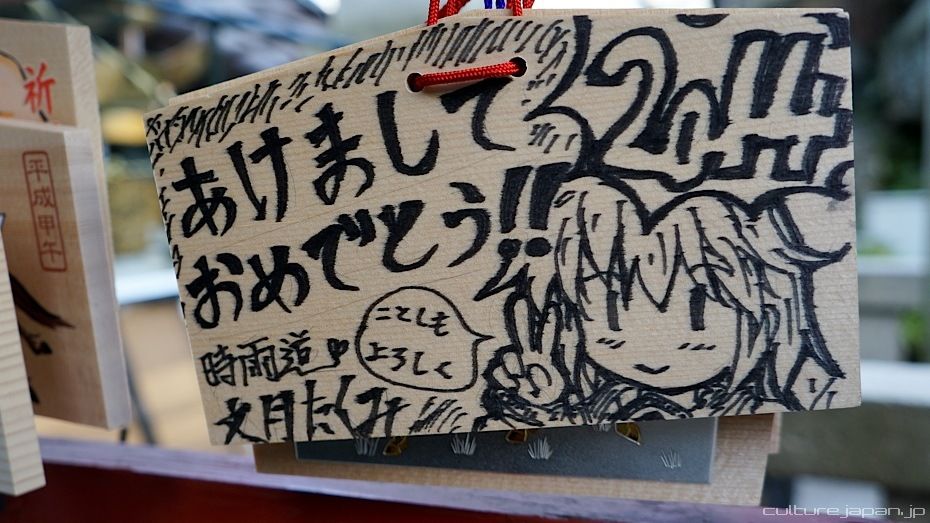 祈
平成甲午
あけまして
おめでとう!!
ことしも
よろしく
時雨道
文月たくみ
culture.japan.jp